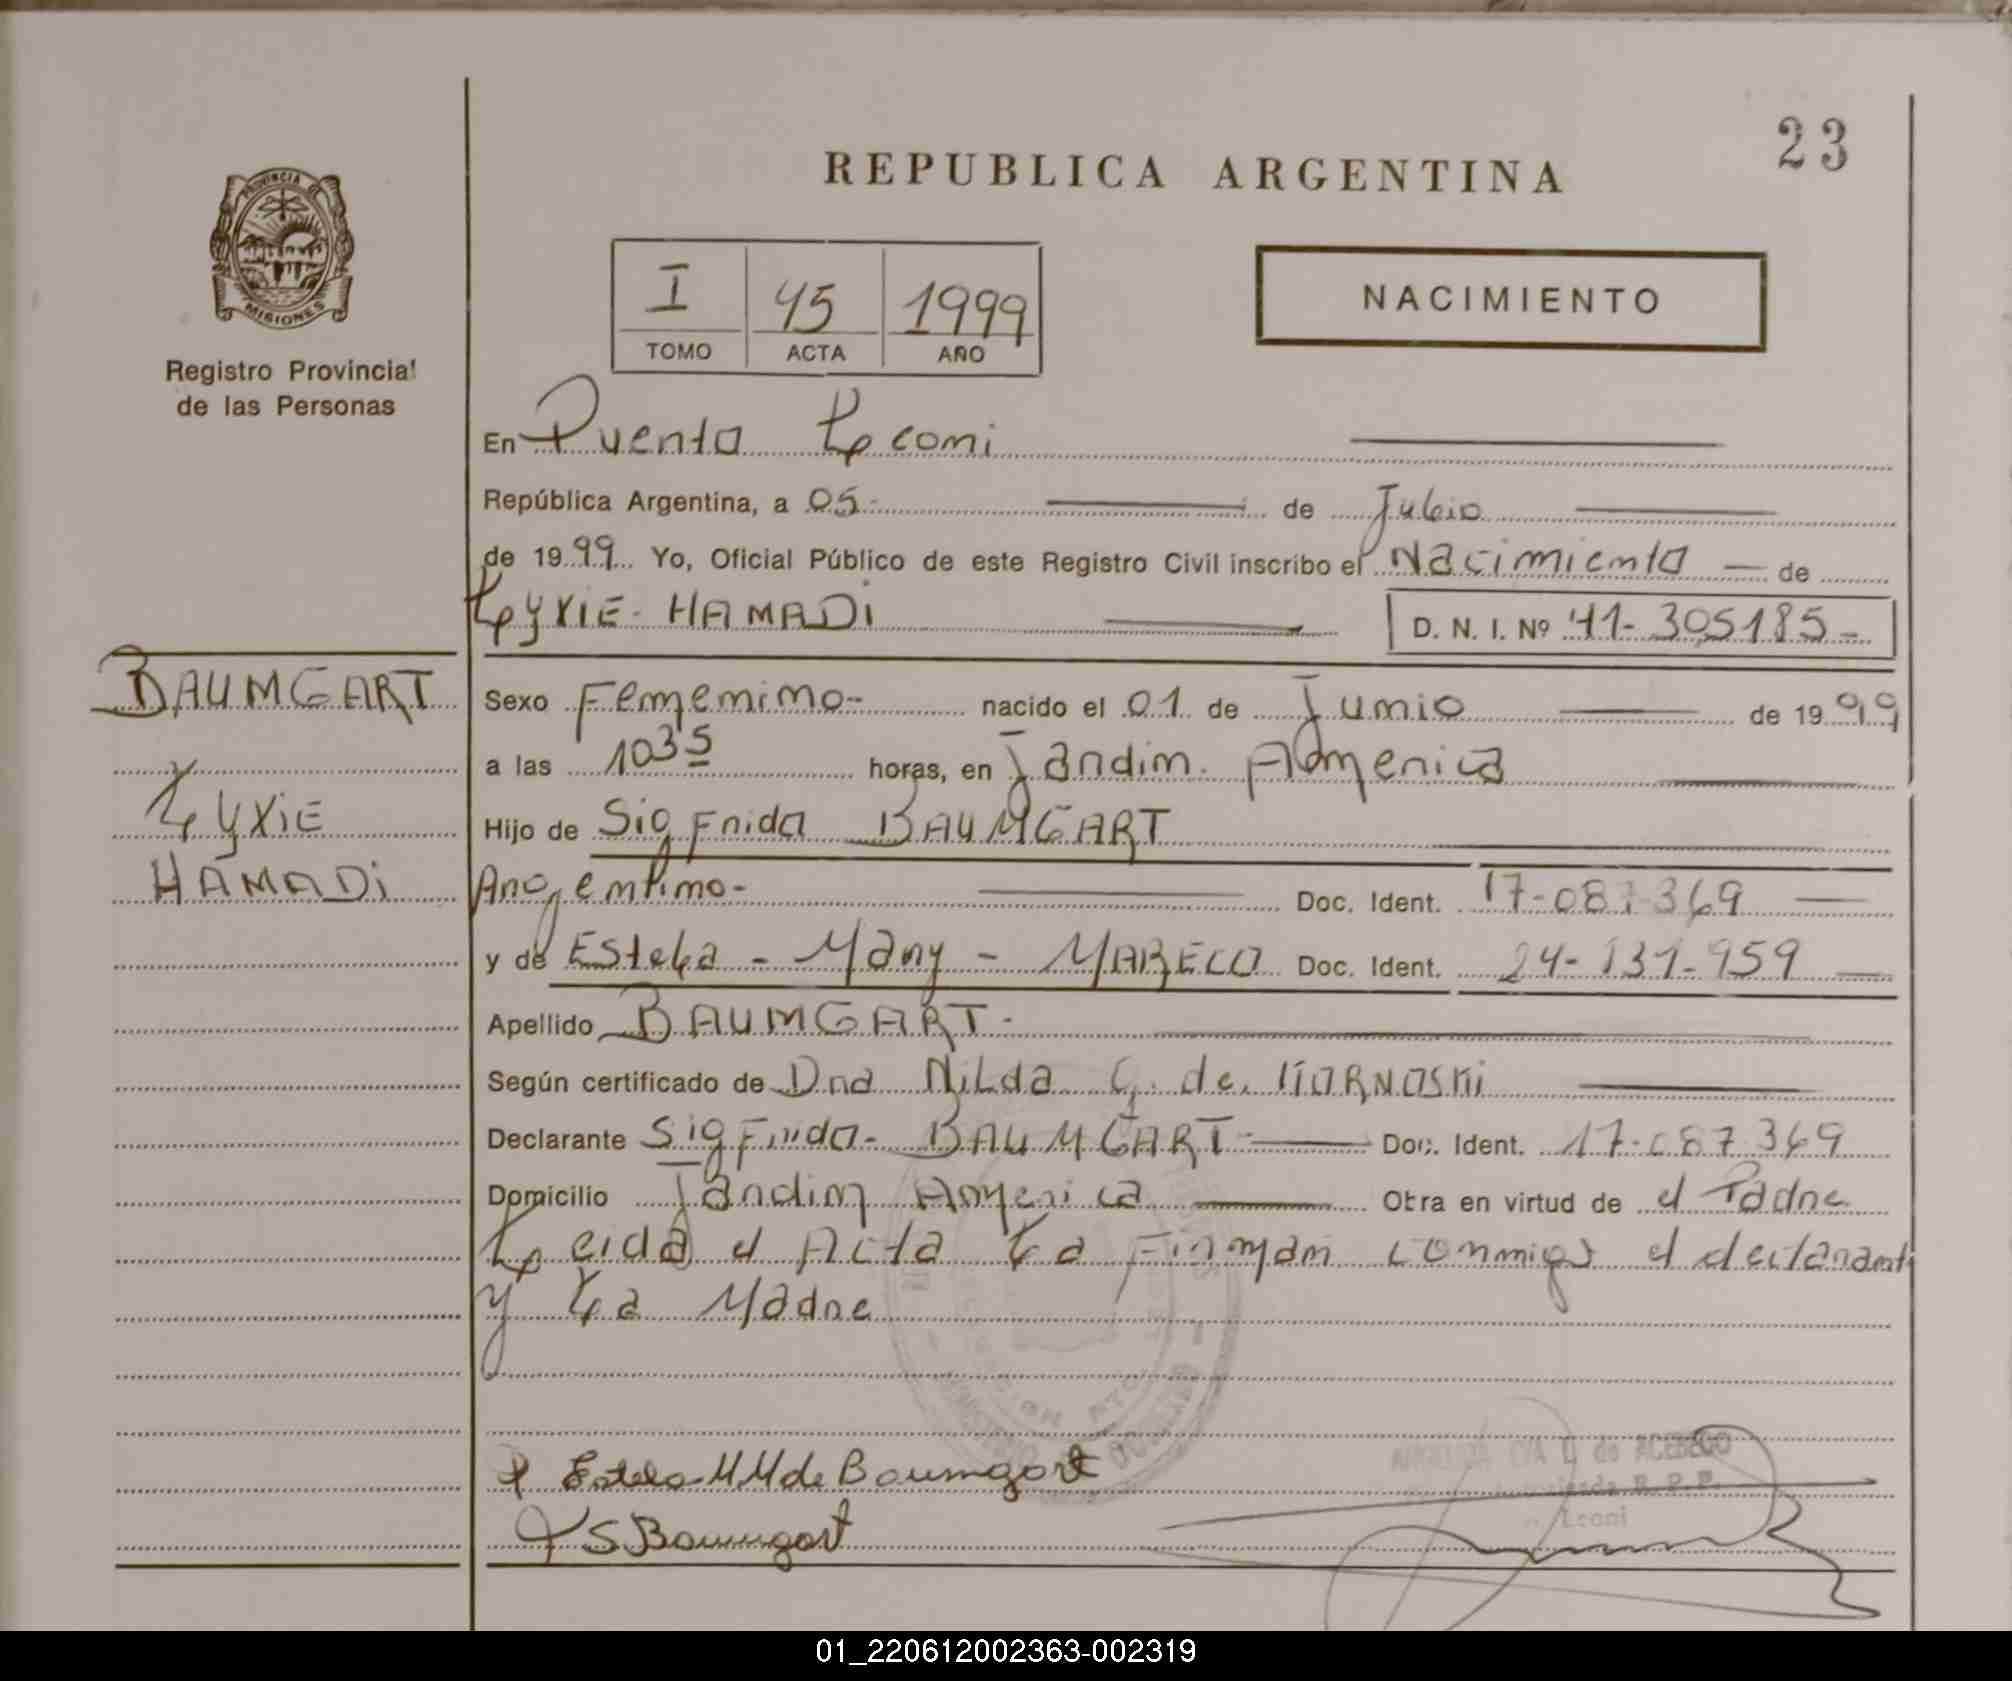 23
REPUBLICA ARGENTINA
PROVINCIA DE
MISIONES
I 45 1999
TOMO ACTA AÑO
NACIMIENTO
Registro Provincial
de las Personas
En Puerto Leoni
República Argentina, a 05 de Julio
de 1999 Yo, Oficial Público de este Registro Civil inscribo el Nacimiento de
Lyxie - HAMADI D. N. I. Nº 41-305185-
BAUMGART
Lyxie
HAMADI
Sexo Femenino- nacido el 01 de Junio de 1999
a las 1035 horas, en Jardin America
Hijo de Sigfrido BAUMGART
Argentino- Doc. Ident. 17-087-369
y de Estela - Mary - MARECO Doc. Ident. 24-131-959
Apellido BAUMGART-
Según certificado de Dra Nilda G. de KORNOSKI
Declarante Sigfrido- BAUMGART- Doc. Ident. 17-087369
Domicilio Jardin America Obra en virtud de el Padre
Leida el Acta la Firman conmigo el declarante
y La Madre
Estela M M de Baumgart
S Baumgart
de ACEBEDO
R. P. P.
Leoni
01_220612002363-002319